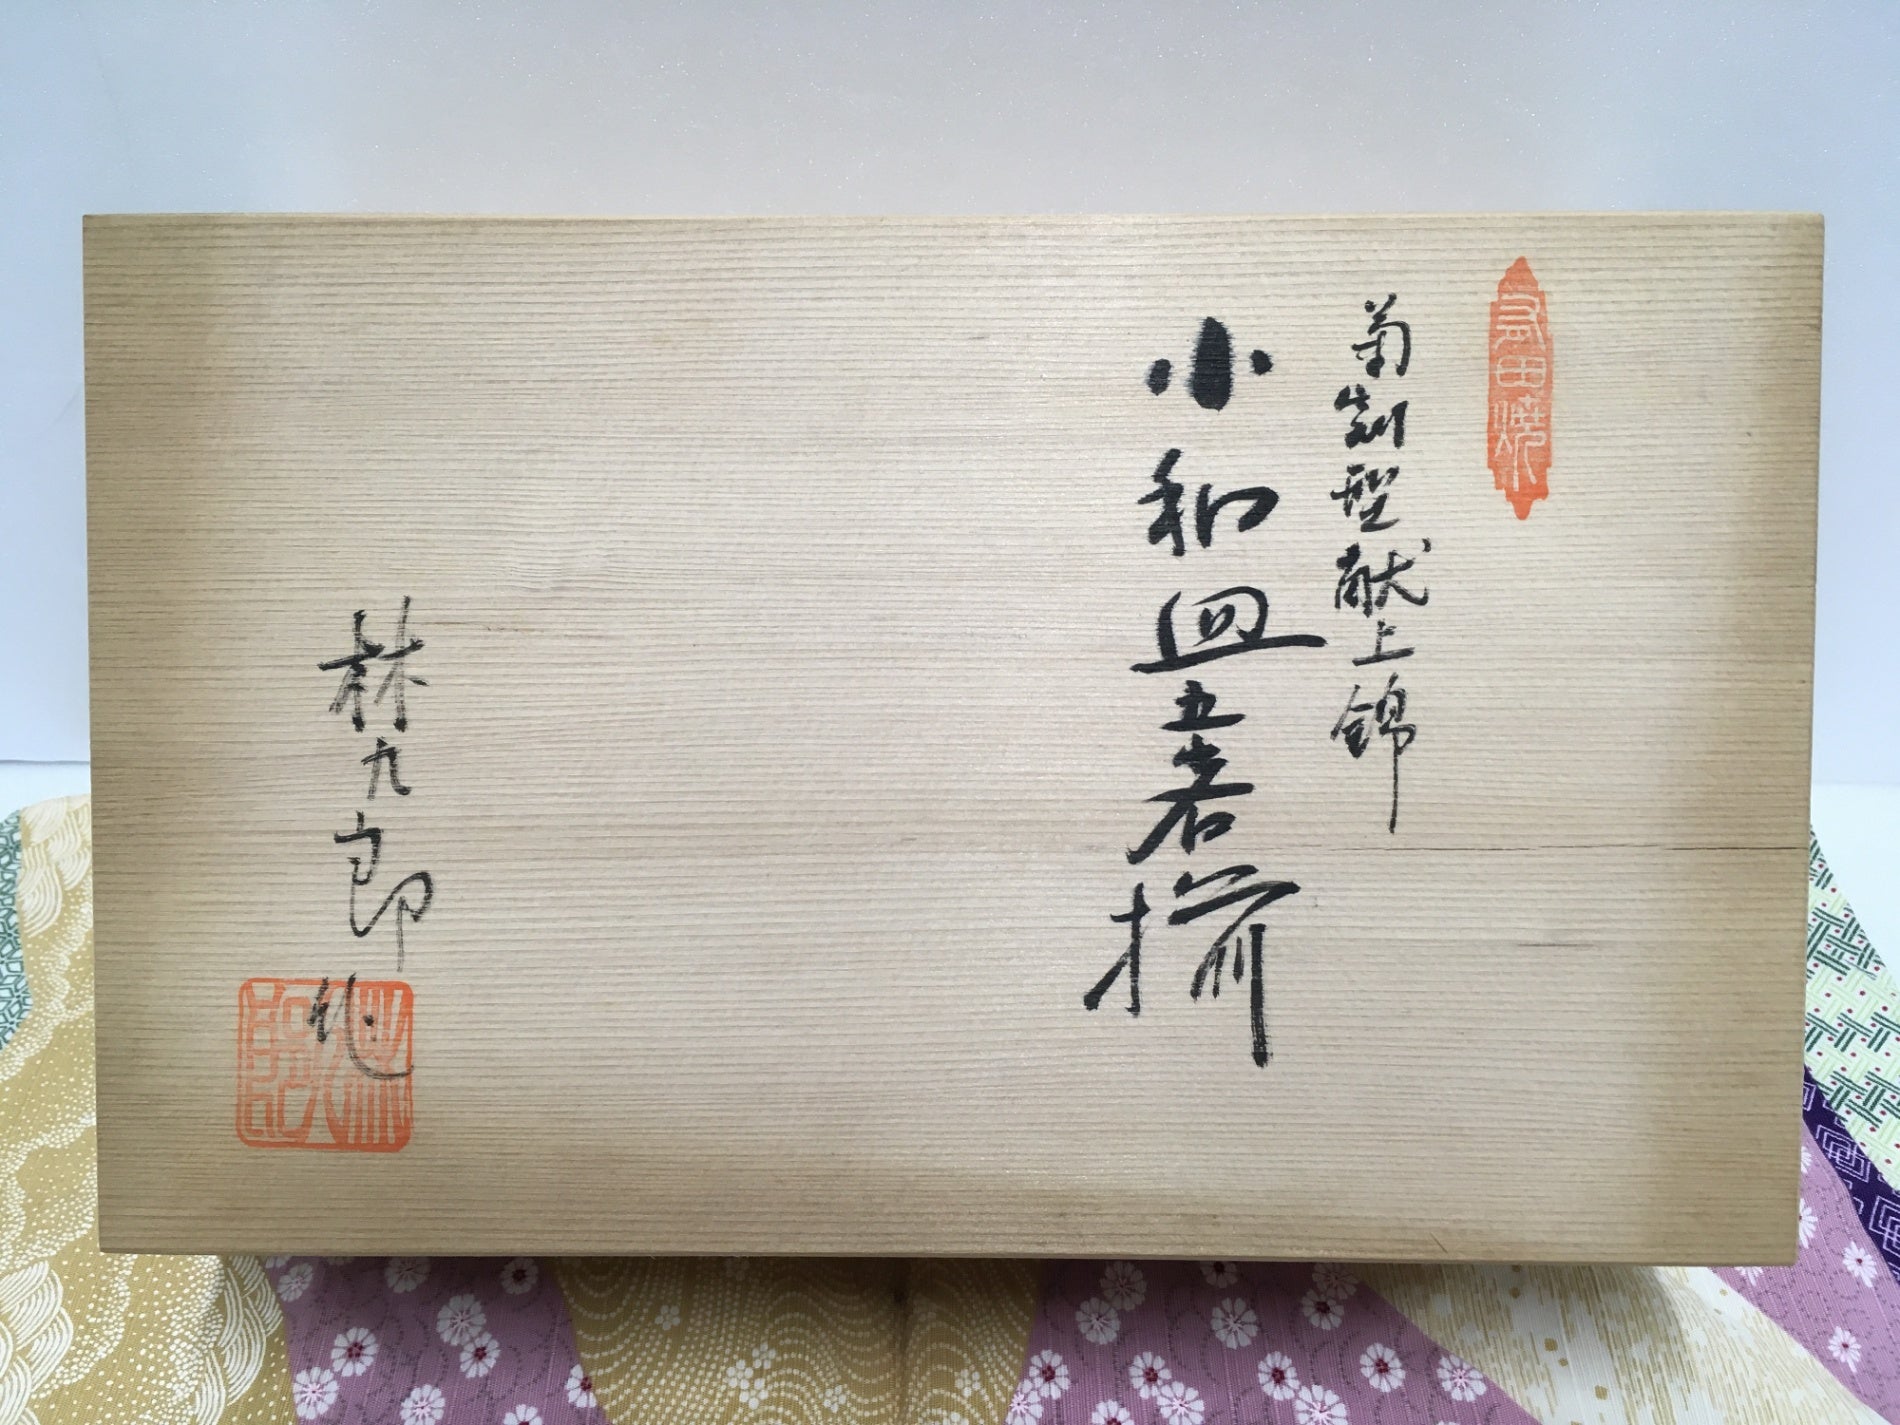 有田焼
菊割型献上錦
小和皿五客揃
林九郎作